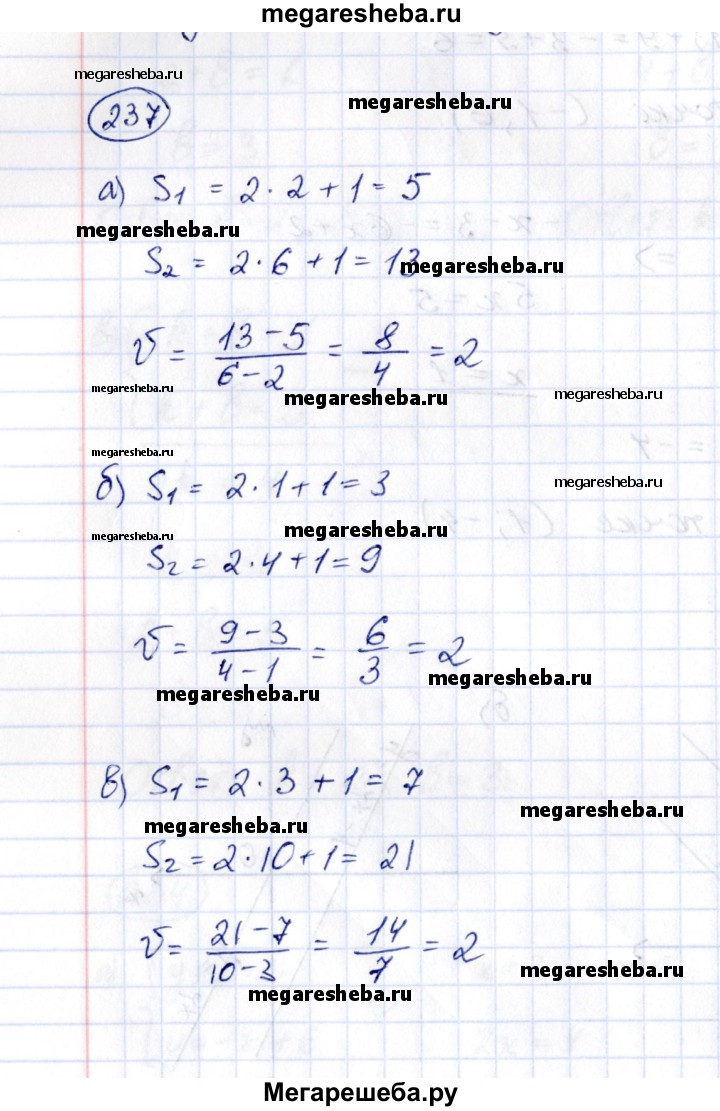 megaresheba.ru
megaresheba.ru
megaresheba.ru
237
а) S₁ = 2 · 2 + 1 = 5
megaresheba.ru
S₂ = 2 · 6 + 1 = 13
megaresheba.ru
v = (13 - 5)/(6 - 2) = 8/4 = 2
megaresheba.ru
megaresheba.ru
megaresheba.ru
megaresheba.ru
б) S₁ = 2 · 1 + 1 = 3
megaresheba.ru
megaresheba.ru
megaresheba.ru
S₂ = 2 · 4 + 1 = 9
v = (9 - 3)/(4 - 1) = 6/3 = 2
megaresheba.ru
megaresheba.ru
в) S₁ = 2 · 3 + 1 = 7
megaresheba.ru
megaresheba.ru
S₂ = 2 · 10 + 1 = 21
v = (21 - 7)/(10 - 3) = 14/7 = 2
megaresheba.ru
megaresheba.ru
Мегарешеба.ру